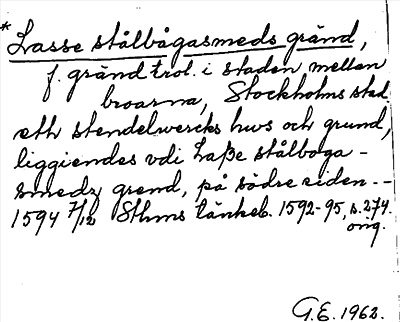 * Lasse stålbågasmeds gränd,
f. gränd trol. i staden mellan
broarna, Stockholms stad
eth stendelwercks hws och grund,
liggiendes vdi Laße stålboga-
smedz grend, på södre siden --
1594 7/12 Sthms tänkeb. 1592-95, s. 274.
orig.
G.E. 1962.